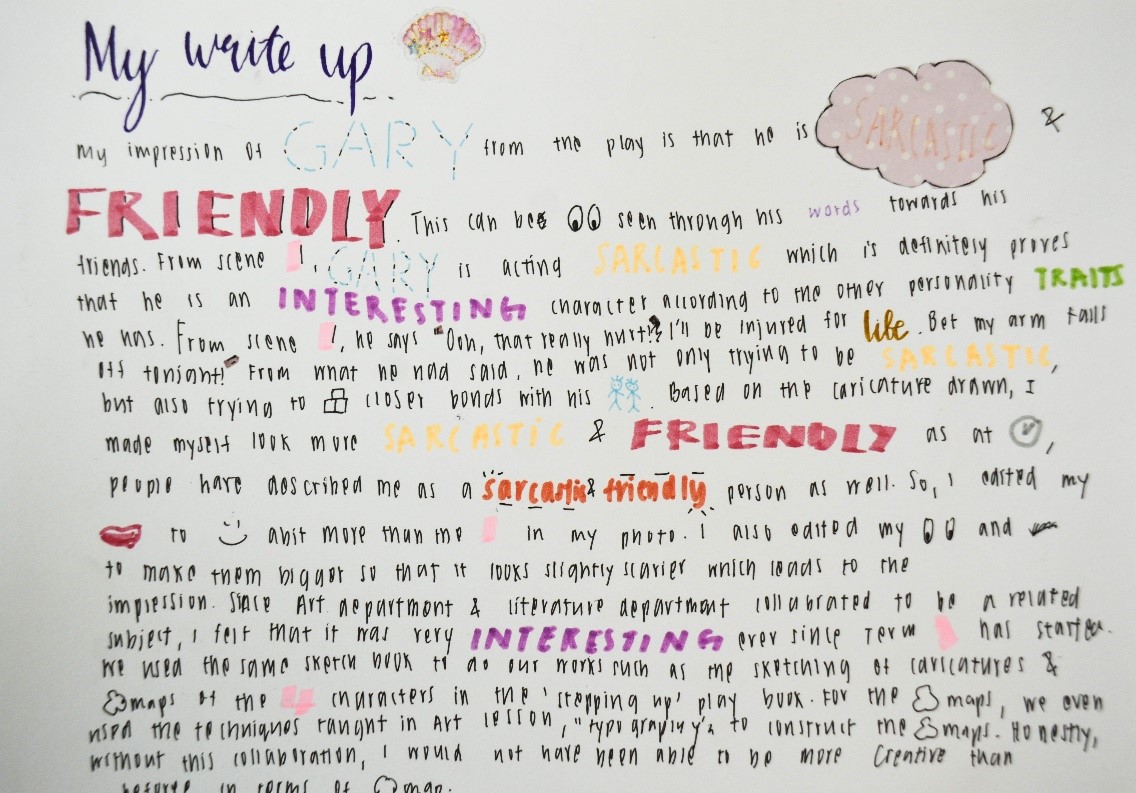 My write up
my impression of GARY from the play is that he is SARCASTIC &
FRIENDLY. This can be seen through his words towards his
friends. From scene 1, GARY is acting SARCASTIC which is definitely proves
that he is an INTERESTING character according to the other personality TRAITS
he has. From scene 1, he says "Ooh, that really hurt!? I'll be injured for life. Bet my arm falls
off tonight!" From what he had said, he was not only trying to be SARCASTIC,
but also trying to closer bonds with his . Based on the caricature drawn, I
made myself look more SARCASTIC & FRIENDLY as at ,
people have described me as a sarcastic & friendly person as well. So, I edited my
to abit more than the in my photo. I also edited my and
to make them bigger so that it looks slightly scarier which leads to the
impression. Since Art department & literature department collabrated to be a related
subject, I felt that it was very INTERESTING ever since Term has started.
We used the same sketch book to do our works such as the sketching of caricatures &
maps of the characters in the 'stepping up' play book. For the maps, we even
used the techniques taught in Art lesson, "typography", to construct the maps. Honestly,
without this collaboration, I would not have been able to be more creative than
before in terms of map.